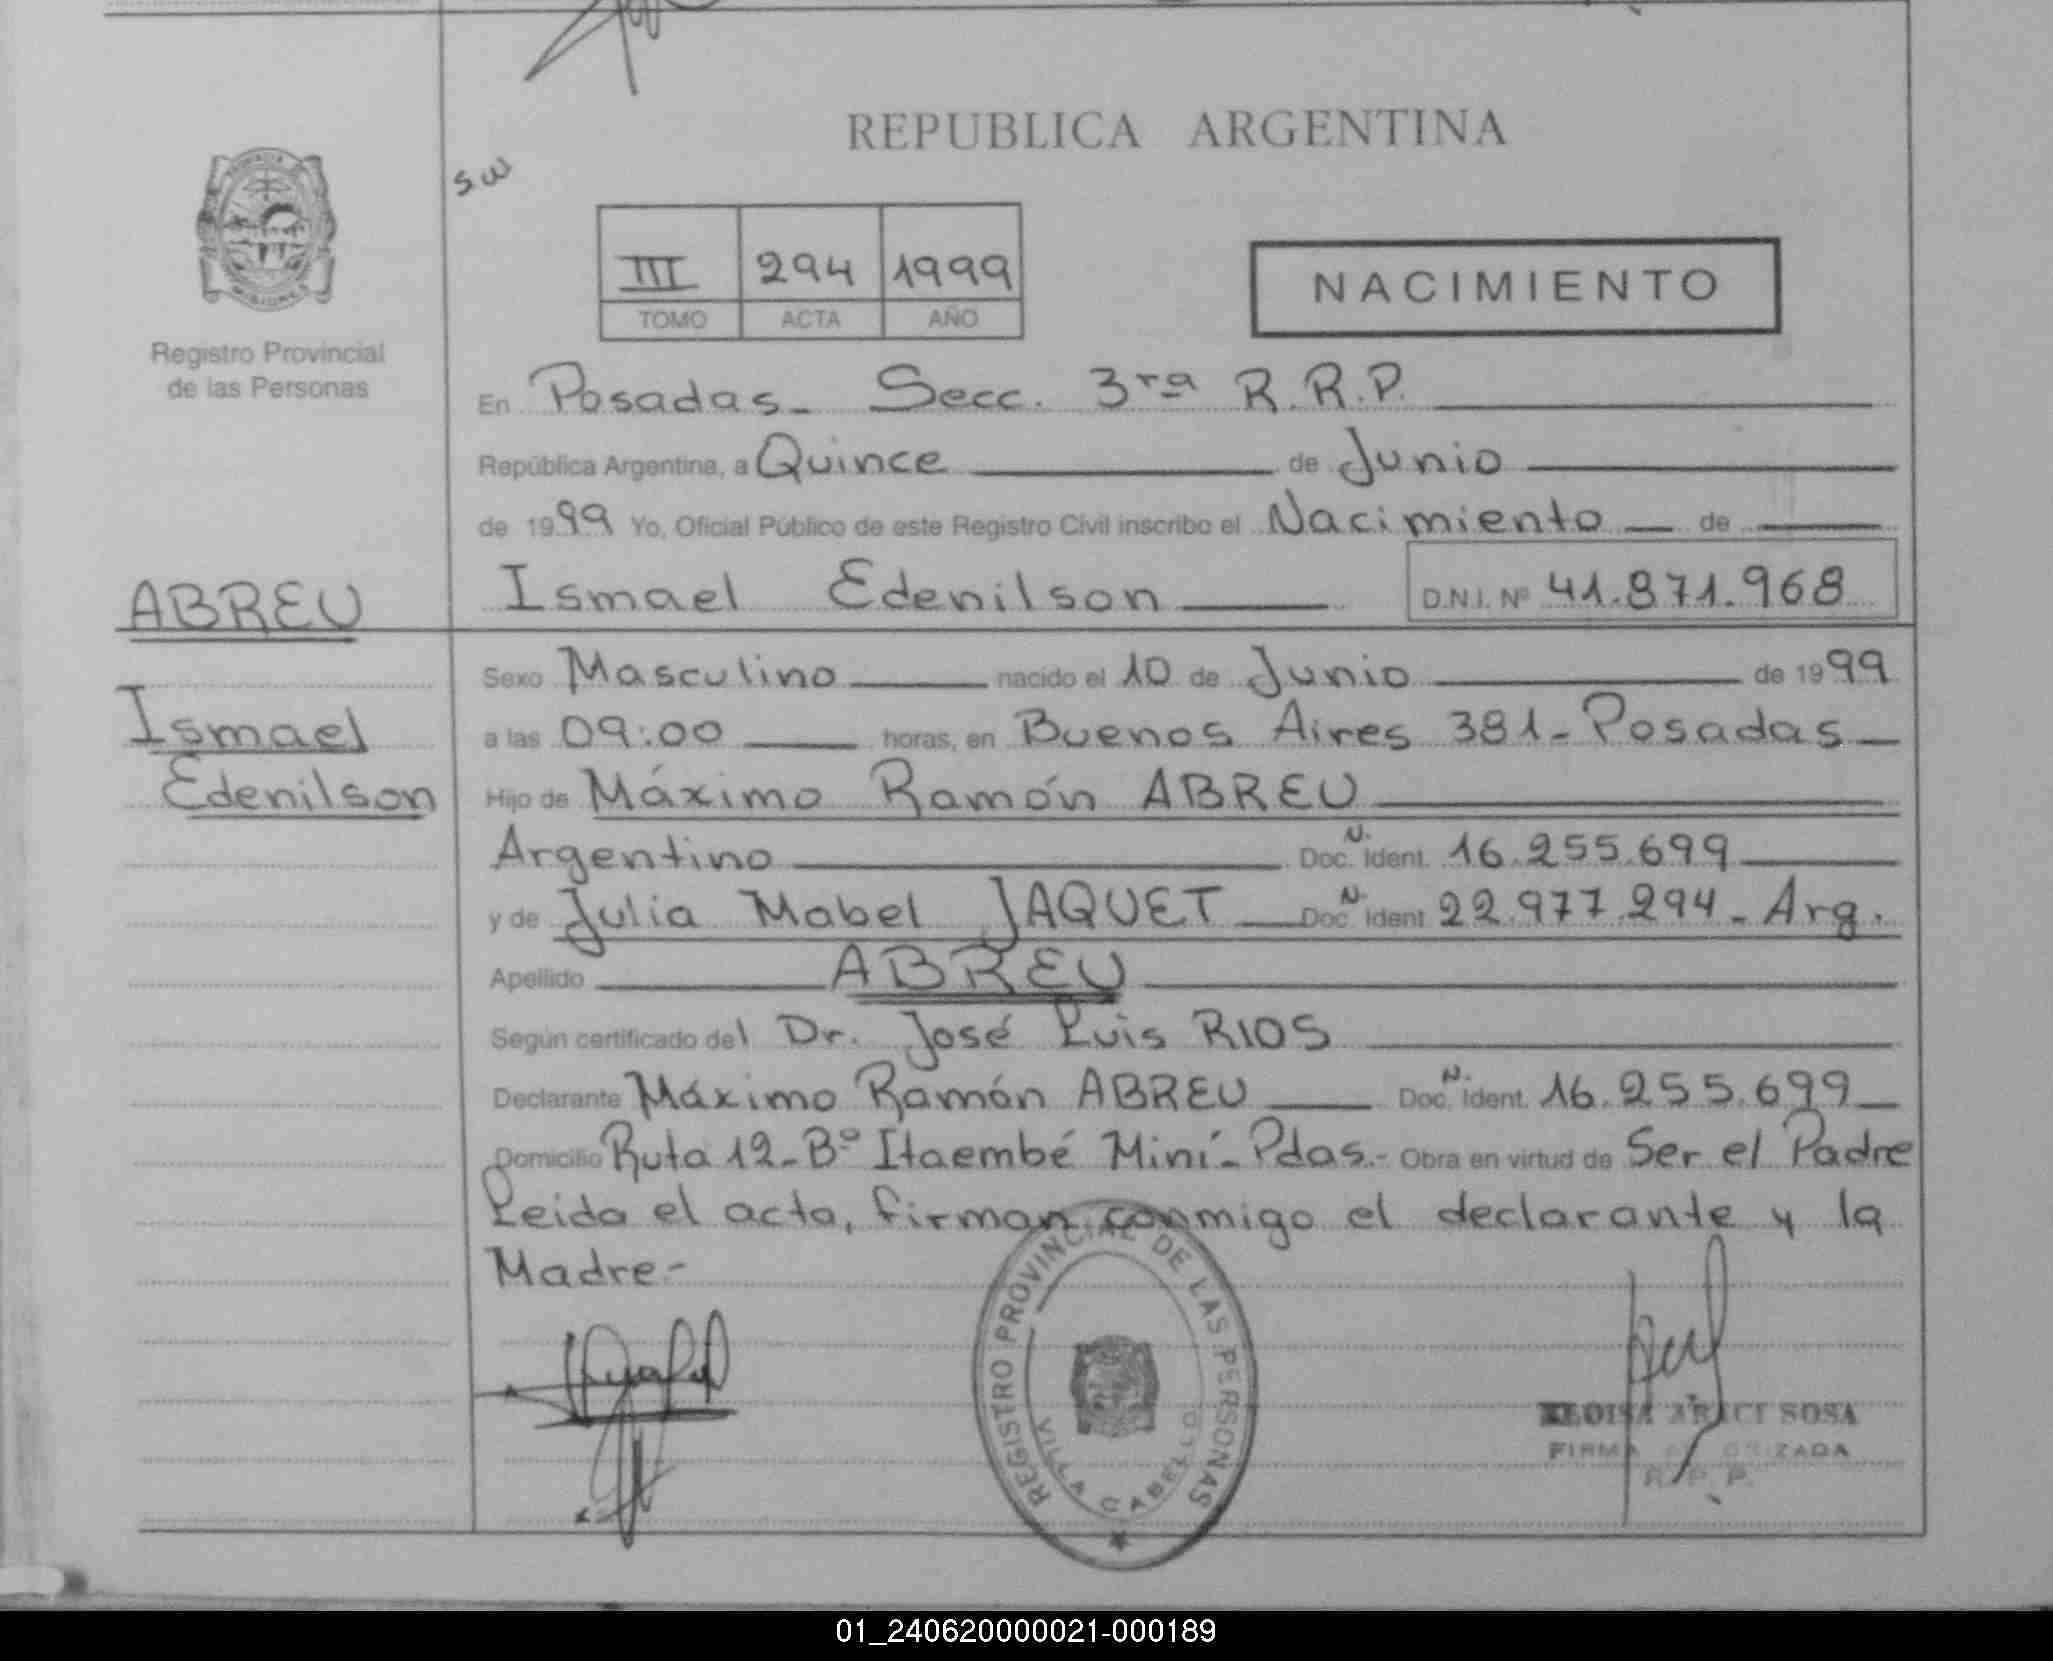 REPUBLICA ARGENTINA
sw
III 294 1999
TOMO ACTA AÑO
NACIMIENTO
MISIONES
Registro Provincial
de las Personas
En Posadas - Secc. 3ra R.R.P.
República Argentina, a Quince de Junio
de 1999 Yo, Oficial Público de este Registro Civil inscribo el Nacimiento de
Ismael Edenilson D.N.I. Nº 41.871.968
ABREU
Ismael
Edenilson
Sexo Masculino nacido el 10 de Junio de 1999
a las 09:00 horas, en Buenos Aires 381 - Posadas
Hijo de Máximo Ramón ABREU
Argentino Doc. N. Ident. 16.255.699
y de Julia Mabel JAQUET Doc. N. Ident. 22.977.294 - Arg.
Apellido ABREU
Según certificado del Dr. José Luis RIOS
Declarante Máximo Ramón ABREU Doc. N. Ident. 16.255.699
Domicilio Ruta 12 - Bº Itaembé Miní - Pdas.- Obra en virtud de Ser el Padre
Leida el acta, firman conmigo el declarante y la
Madre.-
REGISTRO PROVINCIAL DE LAS PERSONAS
VILLA CABELLO
ELOISA ARACI SOSA
FIRMA AUTORIZADA
R. P. P.
01_240620000021-000189